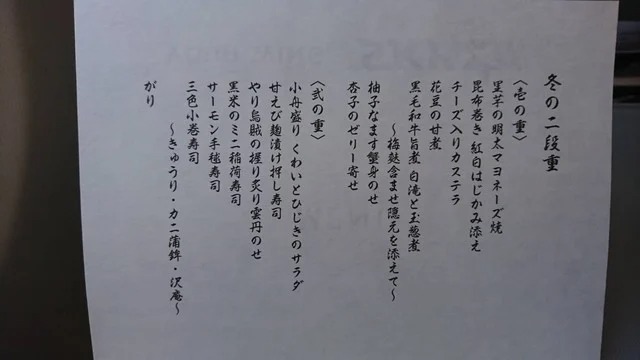 冬の二段重
〈壱の重〉
里芋の明太マヨネーズ焼
昆布巻き 紅白はじかみ添え
チーズ入りカステラ
花豆の甘煮
黒毛和牛旨煮 白滝と玉葱煮
～梅麩含ませ隠元を添えて～
柚子なます蟹身のせ
杏子のゼリー寄せ
〈弐の重〉
小舟盛り くわいとひじきのサラダ
甘えび麹漬け押し寿司
やり烏賊の握り炙り雲丹のせ
黒米のミニ稲荷寿司
サーモン手毬寿司
三色小巻寿司
～きゅうり・カニ蒲鉾・沢庵～
がり